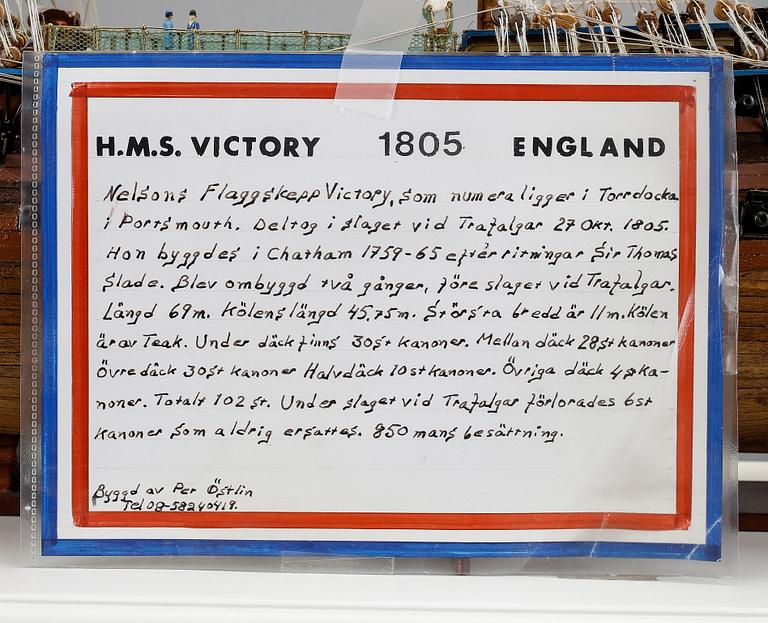 H.M.S. VICTORY 1805 ENGLAND
Nelsons Flaggskepp Victory, som numera ligger i Torrdocka
i Portsmouth. Deltog i slaget vid Trafalgar 27 Okt. 1805.
Hon byggdes i Chatham 1759-65 efter ritningar Sir Thomas
Slade. Blev ombyggd två gånger, före slaget vid Trafalgar.
Längd 69m. Kölens längd 45,75m. Största bredd är 11m. Kölen
är av Teak. Under däck finns 30st kanoner. Mellan däck 28st kanoner
Övre däck 30st kanoner Halvdäck 10st kanoner. Övriga däck 4st ka-
noner. Totalt 102 st. Under slaget vid Trafalgar förlorades 6st
kanoner som aldrig ersattes. 850 mans besättning.
Byggd av Per Östlin
Tel 08-58240419.